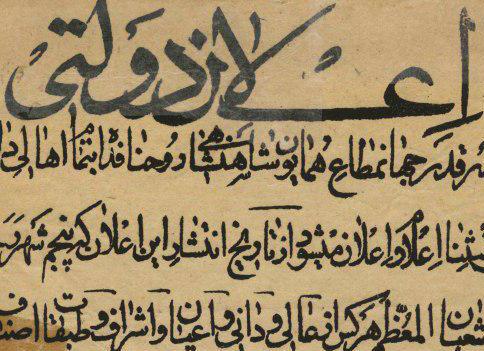 اعلان دولتی
قدر جهانمطاع همایون شاهنشاهی روحنا فداه بتمام اهالی
استثنا اعلام و اعلان میشود از تاریخ انتشار این اعلان که پنجم شهر
شعبان المعظم هر کس از اعالی و ادانی و اعیان و اشراف و طبقات اصناف